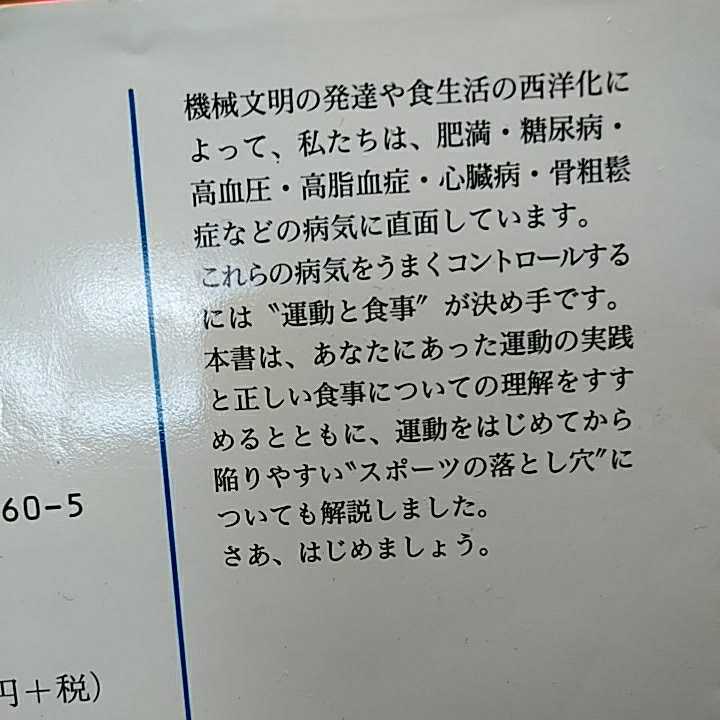 機械文明の発達や食生活の西洋化に
よって、私たちは、肥満・糖尿病・
高血圧・高脂血症・心臓病・骨粗鬆
症などの病気に直面しています。
これらの病気をうまくコントロールする
には〝運動と食事〟が決め手です。
本書は、あなたにあった運動の実践
と正しい食事についての理解をすす
めるとともに、運動をはじめてから
陥りやすい〝スポーツの落とし穴〟に
ついても解説しました。
さあ、はじめましょう。
60-5
円+税)